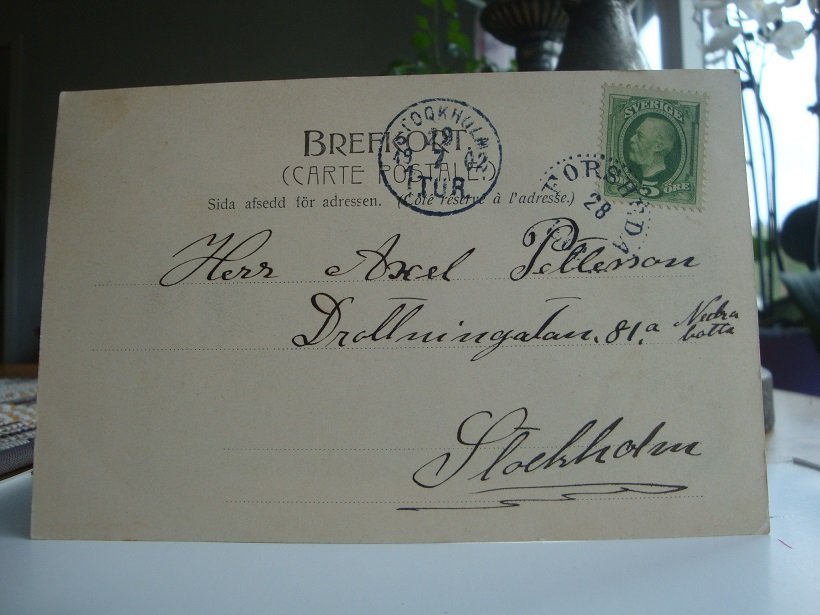 BREFKORT
(CARTE POSTALE)
Sida afsedd för adressen. (Côté réservé à l'adresse.)
STOCKHOLM
19
19 7 02
1 TUR
SVERIGE
5 ÖRE
FORSHEDA
28
Herr Axel Petterson
Drottningatan. 81.a Nedra
botta
Stockholm